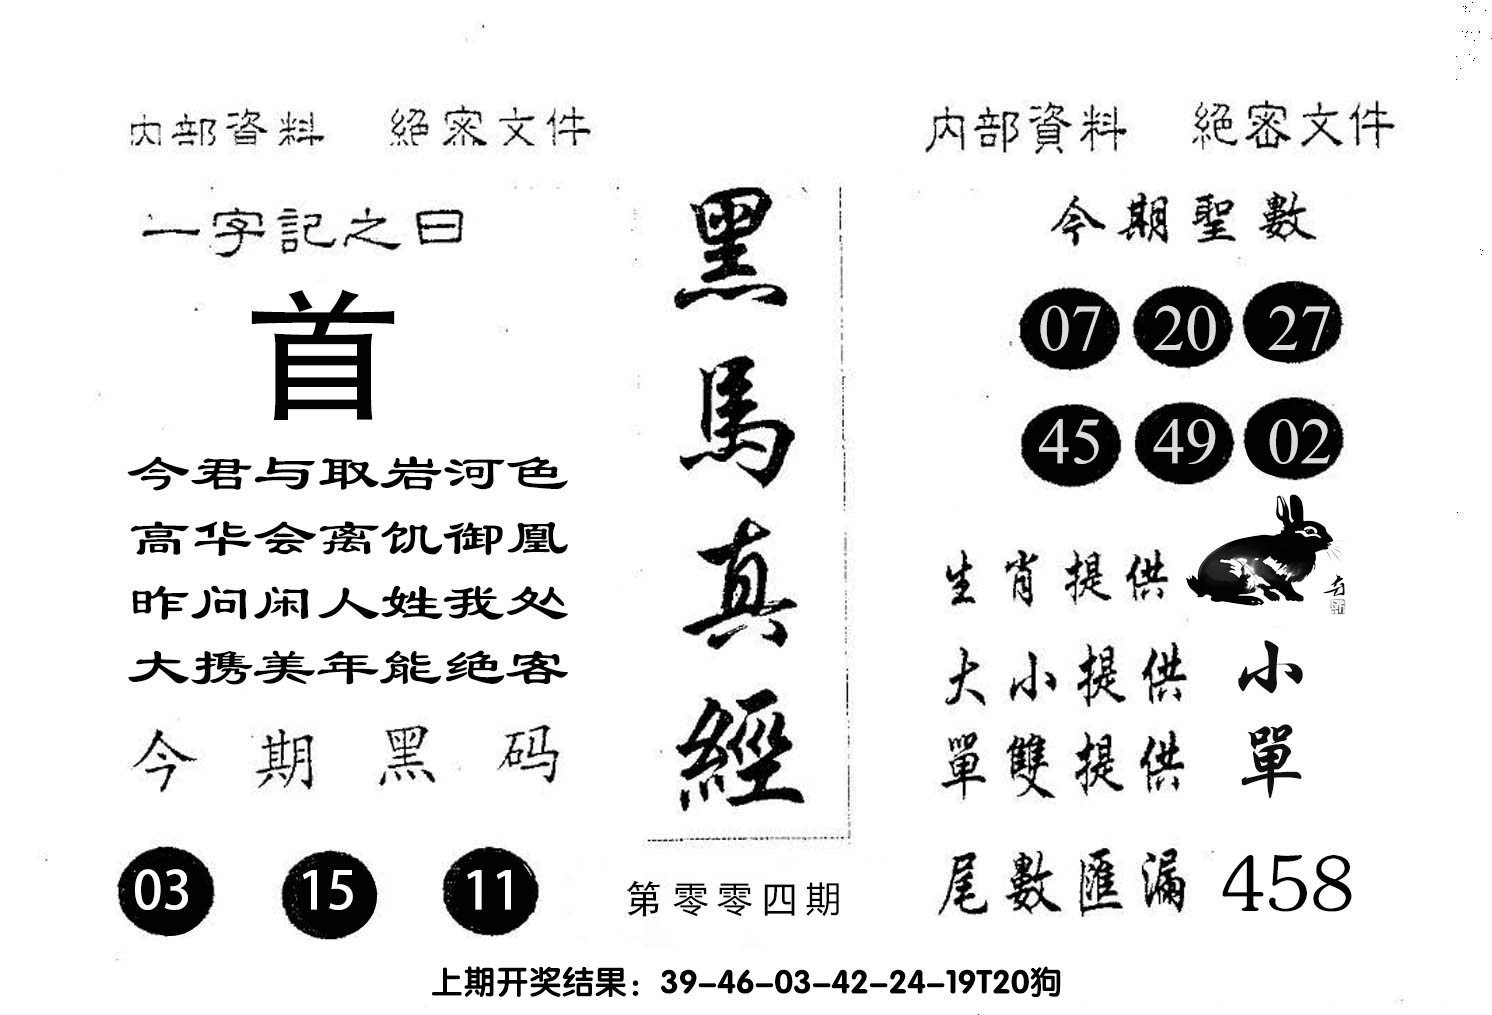 内部資料 絕密文件
一字記之曰
首
今君与取岩河色
高华会离饥御凰
昨问闲人姓我处
大携美年能绝客
今期黑码
03 15 11
黑馬真經
第零零四期
内部資料 絕密文件
今期聖數
07 20 27
45 49 02
生肖提供
大小提供 小
單雙提供 單
尾數匯漏 458
上期开奖结果：39-46-03-42-24-19T20狗